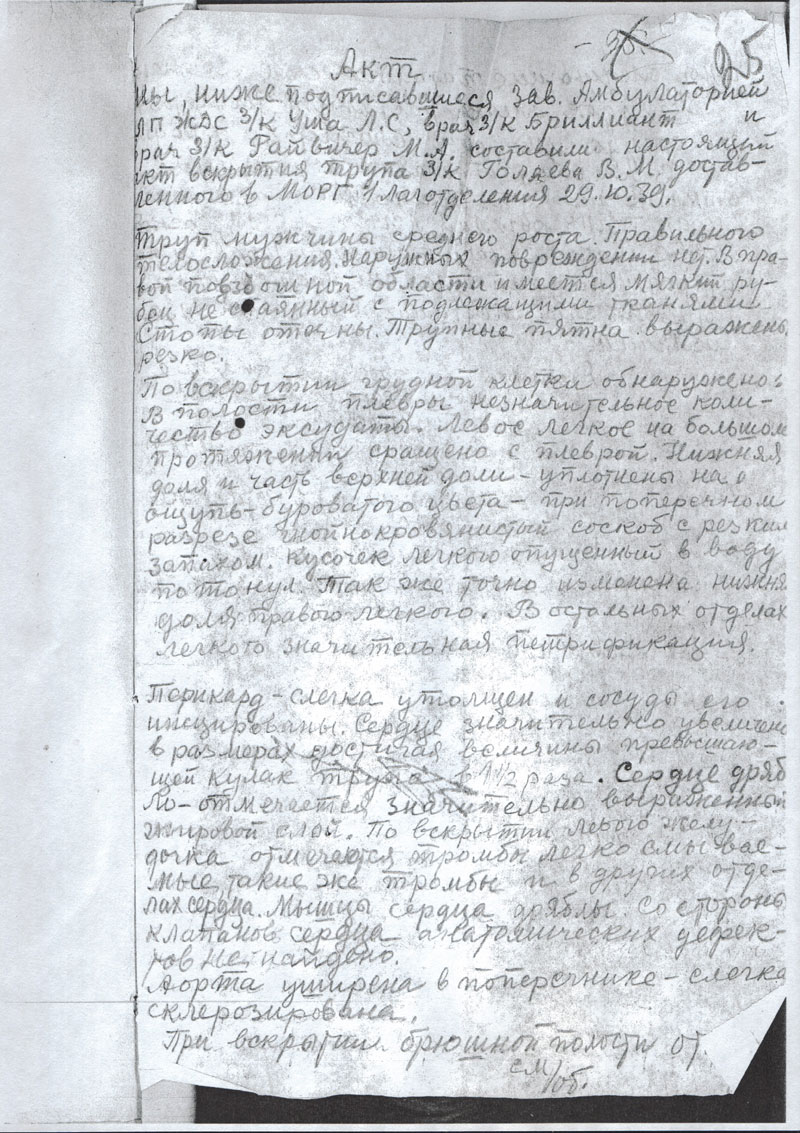 25
Акт
мы, ниже подписавшиеся Зав. Амбулаторией
ЛП ЖДС З/к Уша Л.С, врач З/к Бриллиант и
врач З/к Райвичер М.А. составили настоящий
акт вскрытия трупа З/к Голяева В.М. достав-
ленного в МОРГ 1 лаготделения 29.10.39.
Труп мужчины среднего роста. Правильного
телосложения. Наружных повреждений нет. В пра-
вой повздошной области имеется мягкий ру-
бец не спаянный с подлежащими тканями
Стопы отечны. Трупные пятна выражены
резко.
По вскрытии грудной клетки обнаружено:
В полости плевры незначительное коли-
чество эксудаты. Левое легкое на большом
протяжении сращено с плеврой. Нижняя
доля и часть верхней доли - уплотнены на
ощупь - буроватого цвета - при поперечном
разрезе гнойнокровянистый соскоб с резким
запахом. Кусочек легкого опущенный в воду
потонул. Так же точно изменена нижня
доля правого легкого. В остальных отделах
легкого значительная петрификация.
Перикард - слегка утолщен и сосуды его
инецированы. Сердце значительно увеличено
в размерах достигая величины превышаю-
щей кулак трупа в 1 1/2 раза. Сердце дряб
ло - отмечается значительно выраженный
жировой слой. По вскрытии левого желу-
дочка отмечаются тромбы легко смывае-
мые, такие же тромбы и в других отде-
лах сердца. Мышцы сердца дряблы. Со стороны
клапанов сердца анатомических дефек-
тов не найдено.
Аорта уширена в поперечнике - слегка
склерозирована.
При вскрытии брюшной полости от.
см/об.